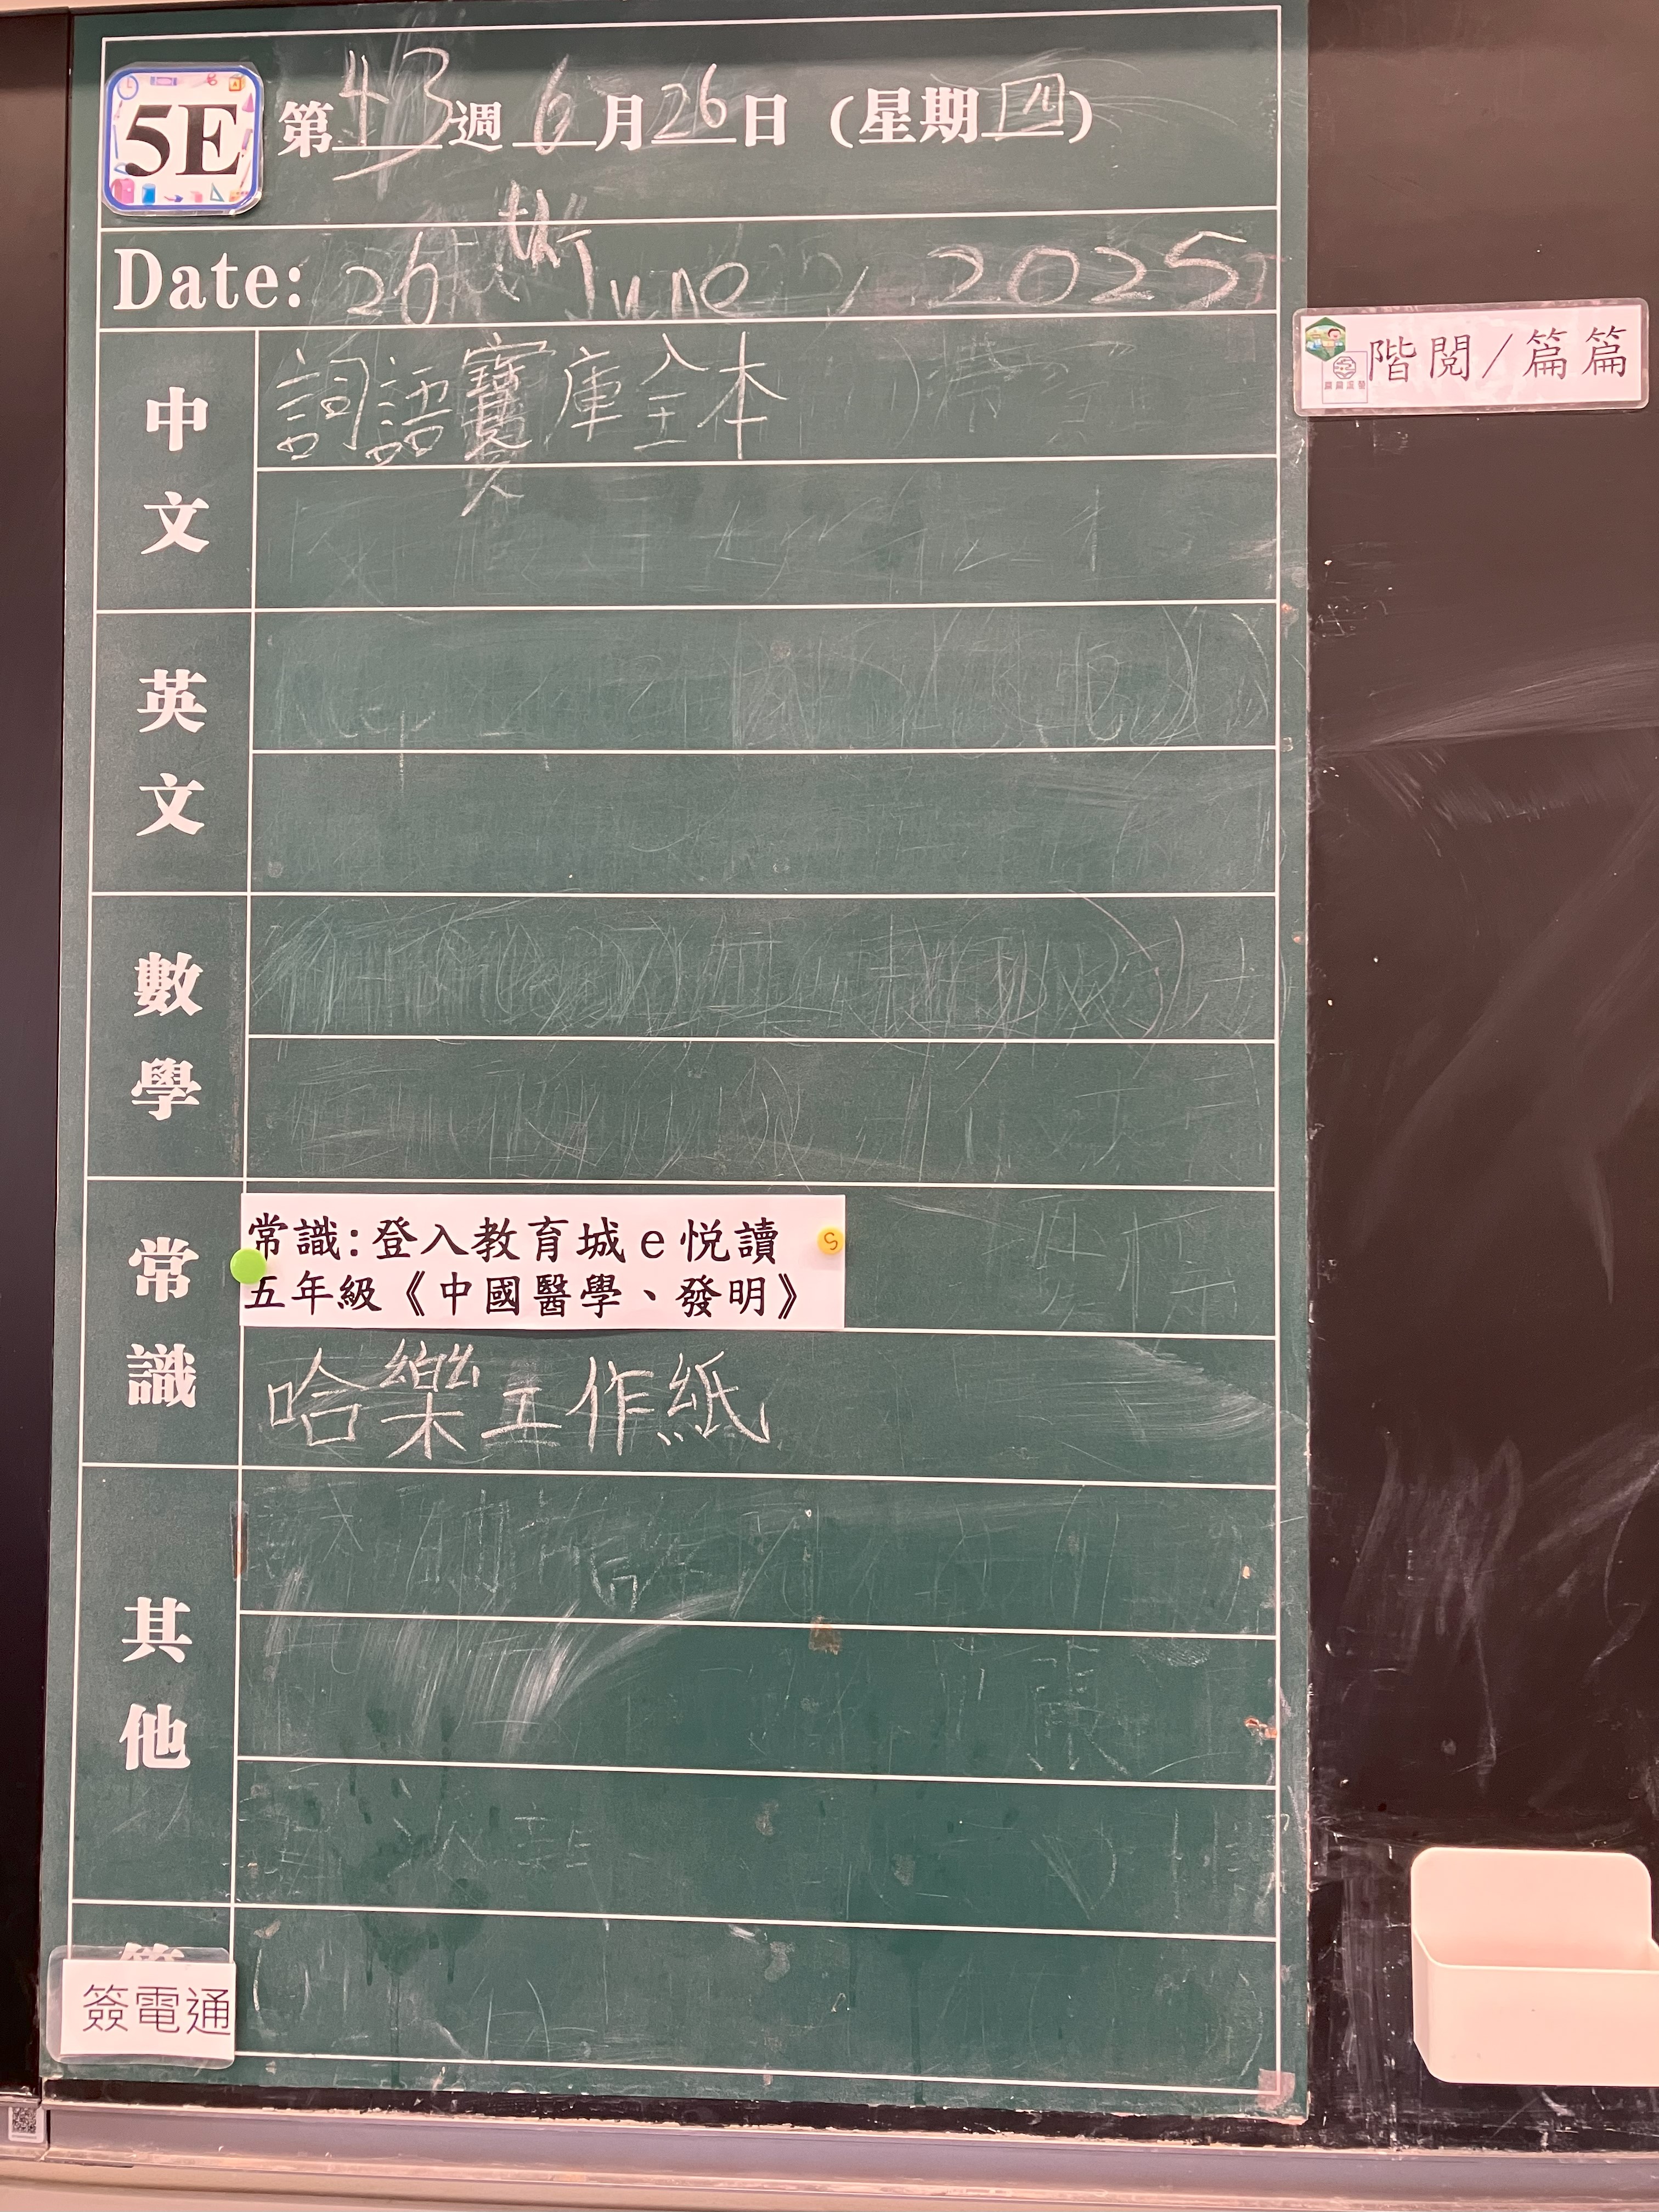 5E 第43週 6月26日 (星期四)
Date: 26th June, 2025
階閱/篇篇
中文
詞語寶庫全本
英文
數學
常識
常識:登入教育城e悅讀
五年級《中國醫學、發明》
S
哈樂工作紙
其他
簽電通